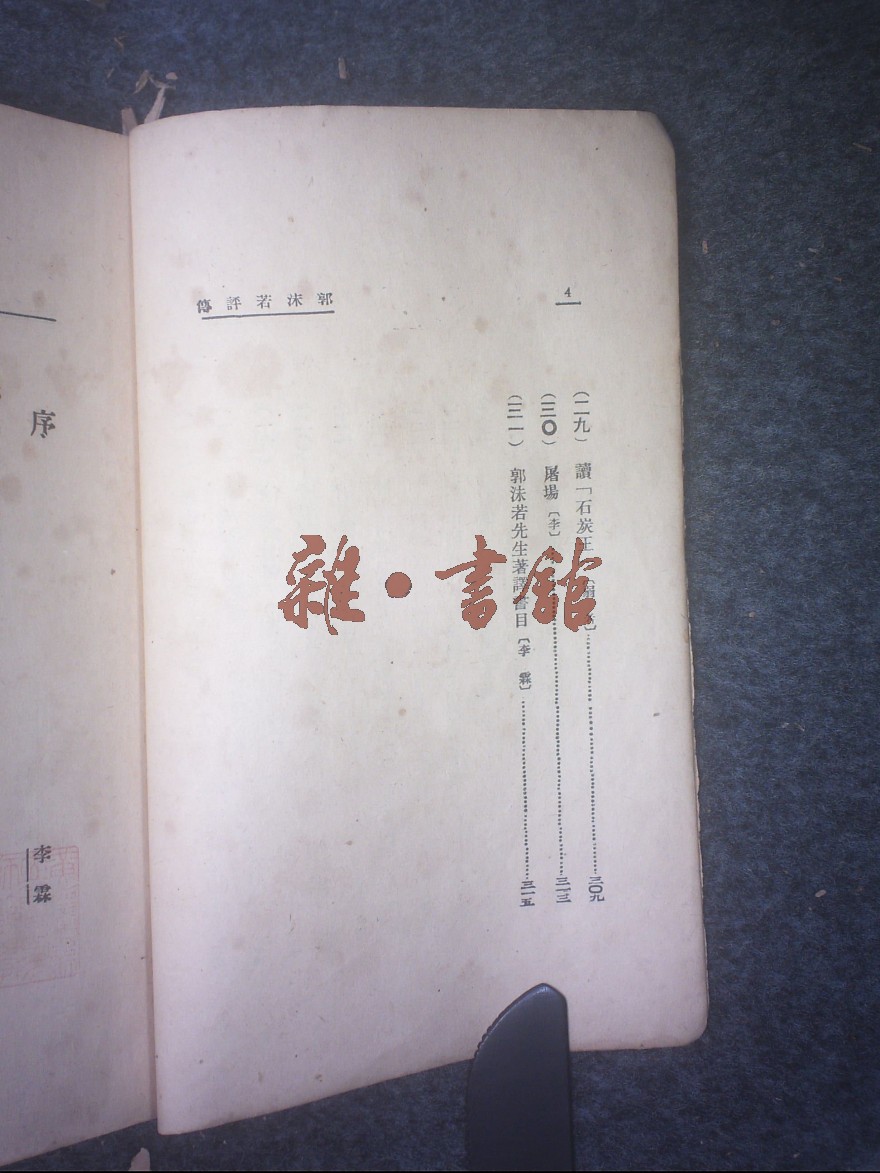 郭沫若評傳
4
（二九） 讀「石炭王 ……三〇九
（三〇） 屠場〔李〕……三一三
（三一） 郭沫若先生著譯書目〔李 霖〕……三一五
序
李 霖
雜·書館